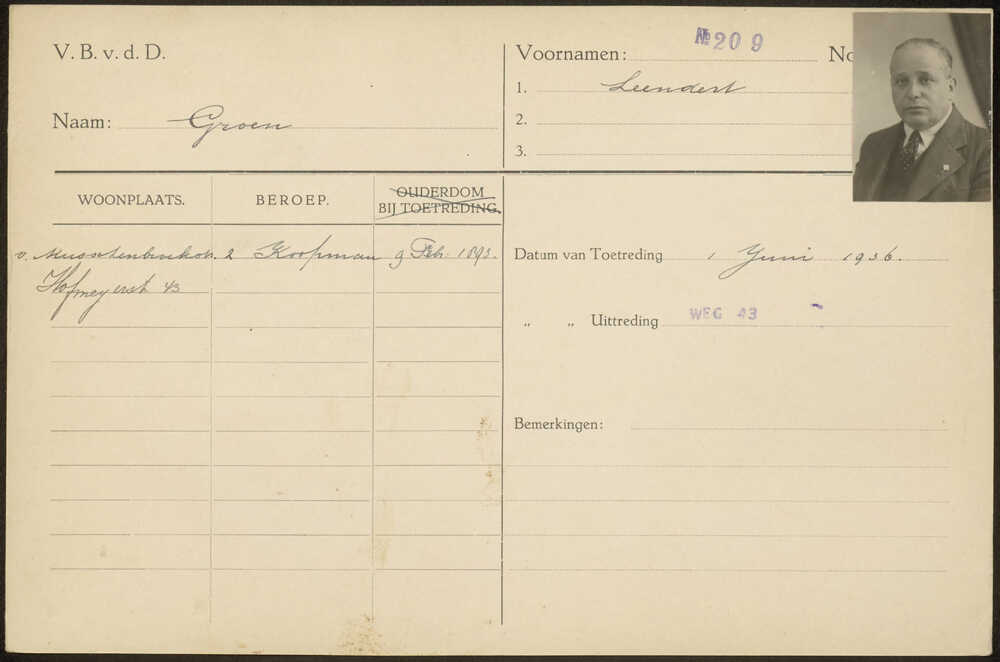 V. B. v. d. D.
Naam: Groen
№ 209
Voornamen: No
1. Leendert
2.
3.
WOONPLAATS. BEROEP. OUDERDOM BIJ TOETREDING.
v. Musschenbroekstr. 2 Koopman 9 Feb. 1893.
Hofmeyerstr 43
Datum van Toetreding 1 Juni 1936.
„ „ Uittreding WEG 43
Bemerkingen: